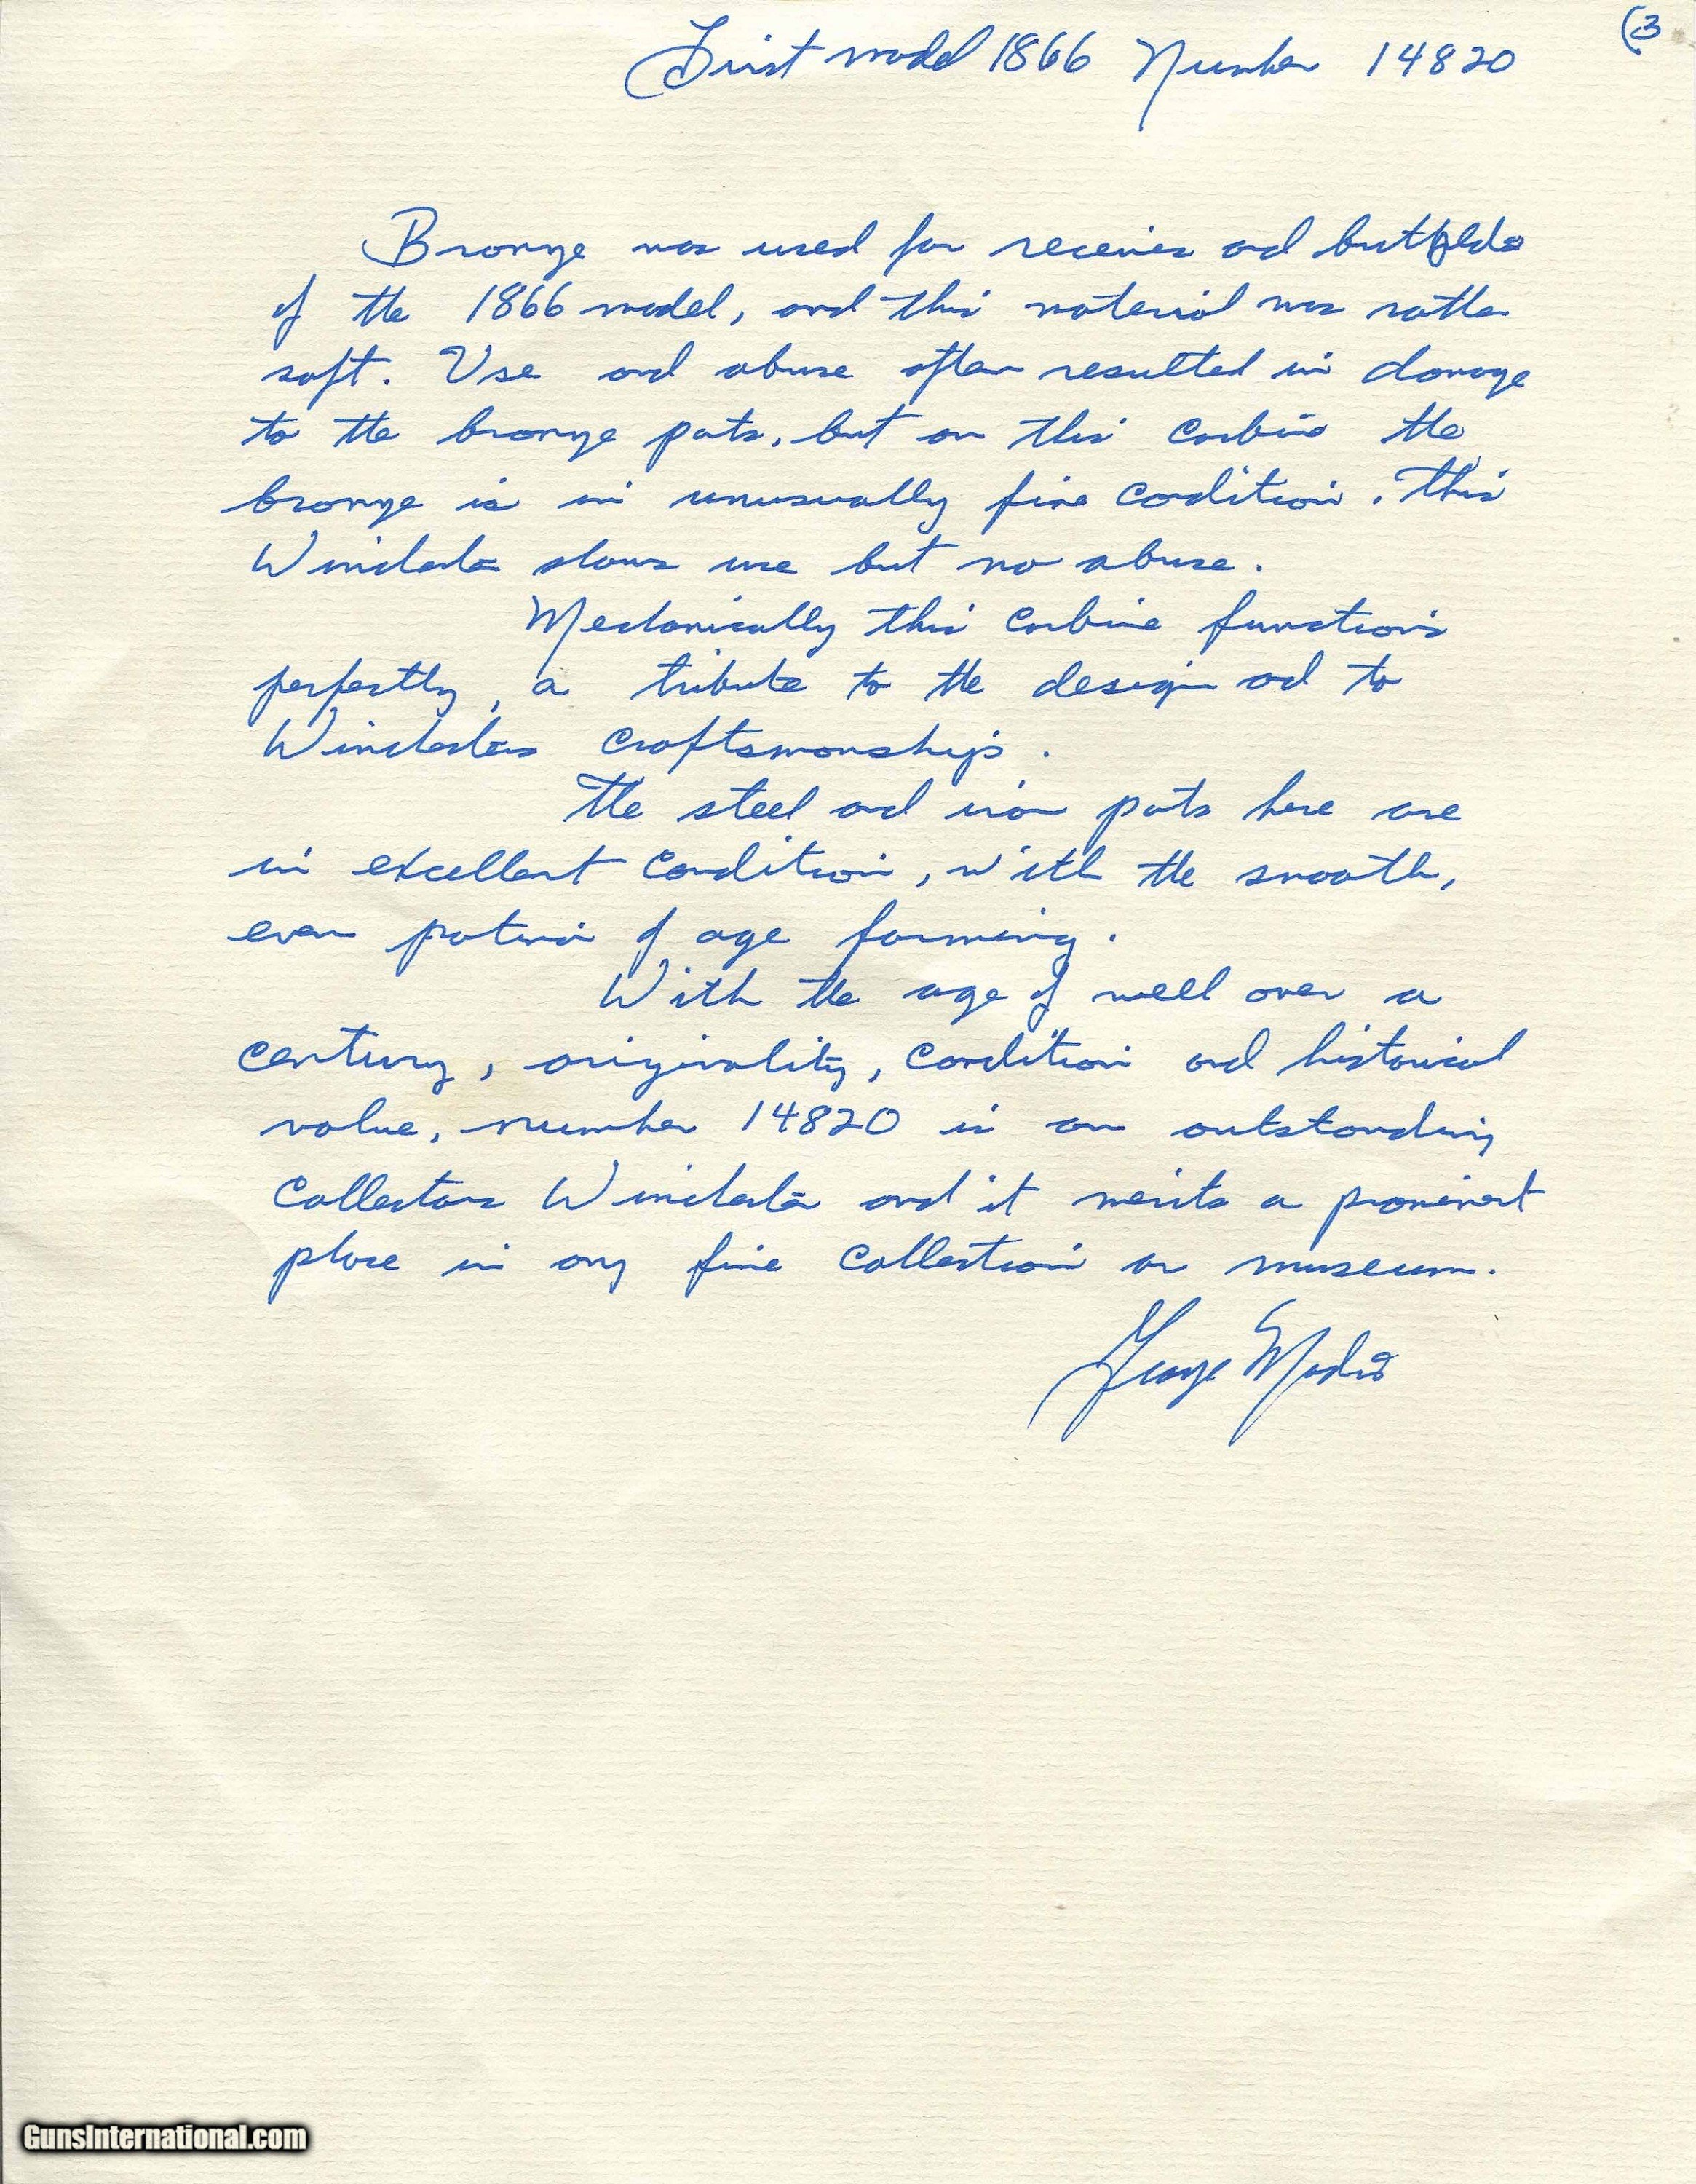 (3
First model 1866 Number 14820
Bronze was used for receiver and buttplate
of the 1866 model, and this material was rather
soft. Use and abuse often resulted in damage
to the bronze parts, but on this carbine the
bronze is in unusually fine condition. This
Winchester shows use but no abuse.
Mechanically this carbine functions
perfectly, a tribute to the design and to
Winchesters craftsmanship.
The steel and iron parts here are
in excellent condition, with the smooth,
even patina of age forming.
With the age of well over a
century, originality, condition and historical
value, number 14820 is an outstanding
collectors Winchester and it merits a prominent
place in any fine collection or museum.
George Madis
GunsInternational.com